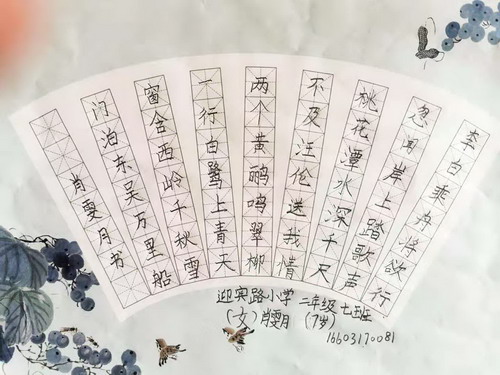 李白乘舟将欲行
忽闻岸上踏歌声
桃花潭水深千尺
不及汪伦送我情
两个黄鹂鸣翠柳
一行白鹭上青天
窗含西岭千秋雪
门泊东吴万里船
肖雯月书
迎宾路小学 二年级七班
(女)肖雯月 (7岁)
16603170081